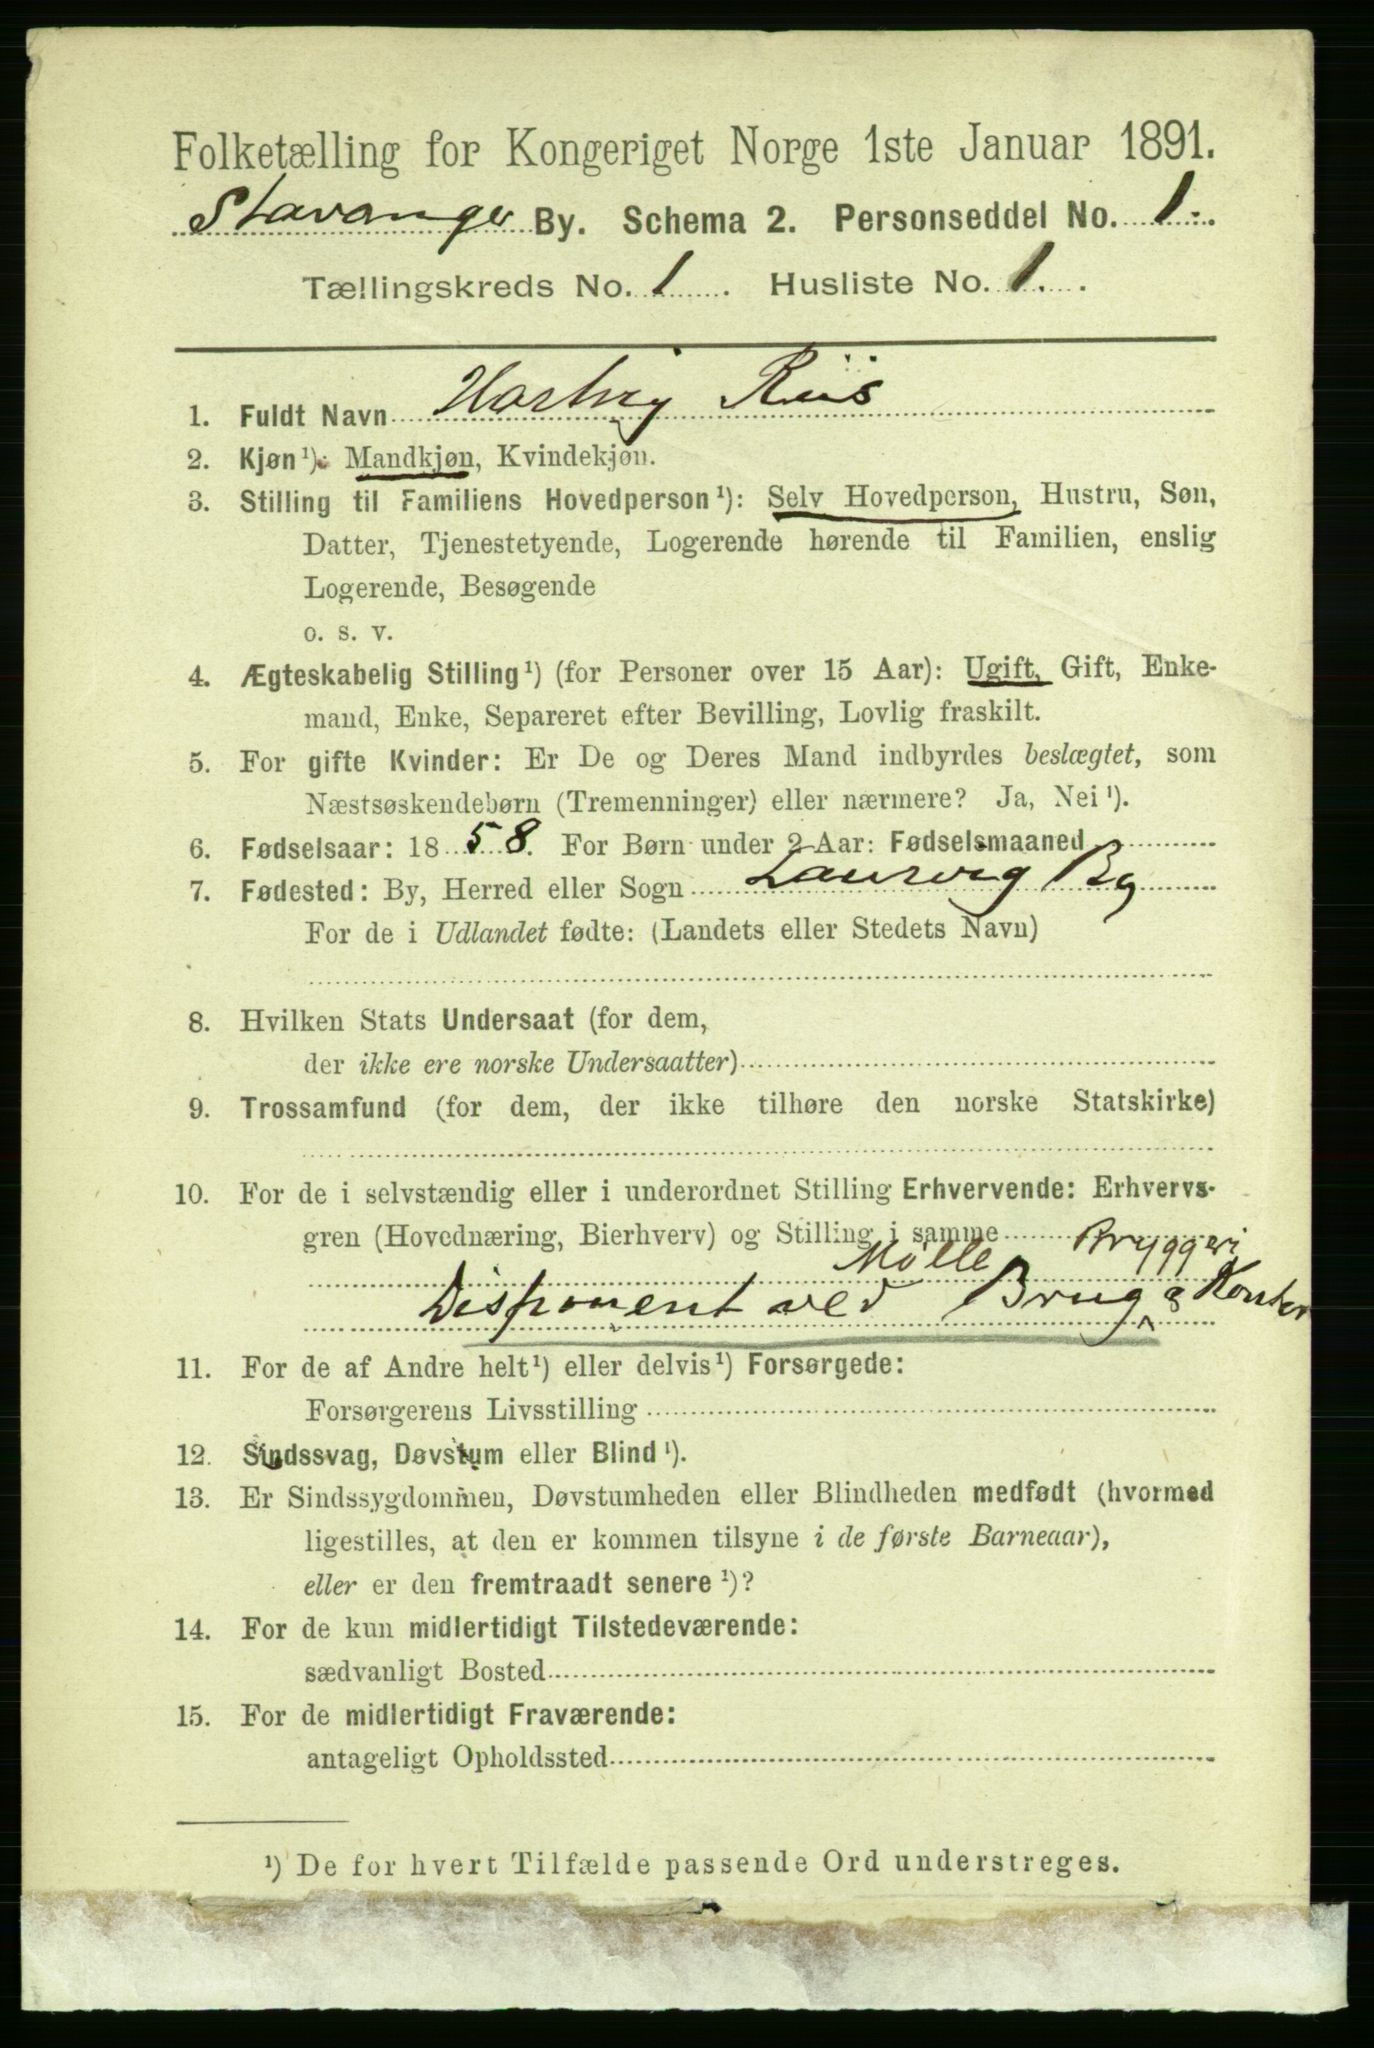 Folketælling for Kongeriget Norge 1ste Januar 1891.
Stavanger By. Schema 2. Personseddel No. 1.
Tællingskreds No. 1. Husliste No. 1.
1. Fuldt Navn Hartvig Riis
2. Kjøn ¹): Mandkjøn, Kvindekjøn.
3. Stilling til Familiens Hovedperson ¹): Selv Hovedperson, Hustru, Søn,
Datter, Tjenestetyende, Logerende hørende til Familien, enslig
Logerende, Besøgende
o. s. v.
4. Ægteskabelig Stilling ¹) (for Personer over 15 Aar): Ugift, Gift, Enke-
mand, Enke, Separeret efter Bevilling, Lovlig fraskilt.
5. For gifte Kvinder: Er De og Deres Mand indbyrdes beslægtet, som
Næstsøskendebørn (Tremenninger) eller nærmere? Ja, Nei ¹).
6. Fødselsaar: 1858. For Børn under 2 Aar: Fødselsmaaned
7. Fødested: By, Herred eller Sogn Laurvig By
For de i Udlandet fødte: (Landets eller Stedets Navn)
8. Hvilken Stats Undersaat (for dem,
der ikke ere norske Undersaatter)
9. Trossamfund (for dem, der ikke tilhøre den norske Statskirke)
10. For de i selvstændig eller i underordnet Stilling Erhvervende: Erhvervs-
gren (Hovednæring, Bierhverv) og Stilling i samme
Mølle Bryggeri
Disponent ved Brug & Kontor
11. For de af Andre helt ¹) eller delvis ¹) Forsørgede:
Forsørgerens Livsstilling
12. Sindssvag, Døvstum eller Blind ¹).
13. Er Sindssygdommen, Døvstumheden eller Blindheden medfødt (hvormed
ligestilles, at den er kommen tilsyne i de første Barneaar),
eller er den fremtraadt senere ¹)?
14. For de kun midlertidigt Tilstedeværende:
sædvanligt Bosted
15. For de midlertidigt Fraværende:
antageligt Opholdssted
¹) De for hvert Tilfælde passende Ord understreges.